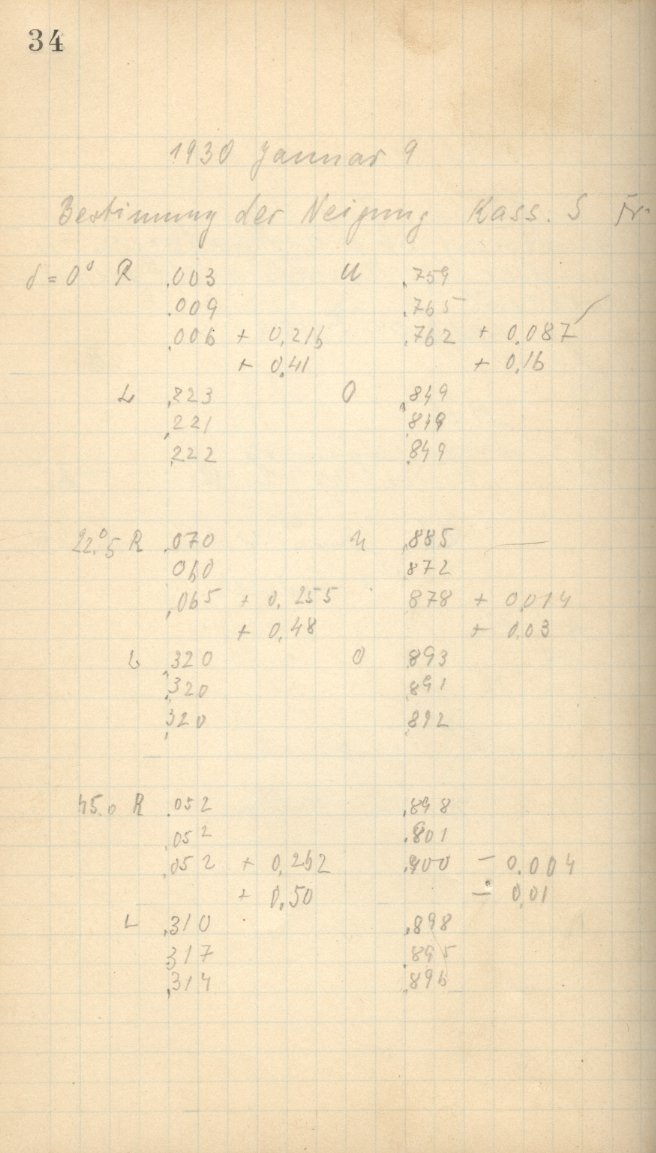 34
1930 Januar 9
Bestimmung der Neigung Kass. S Fr.
δ = 0° R .003 U .759
.009 .765
.006 + 0,216 .762 + 0.087
+ 0,41 + 0,16
L .223 O .849
.221 849
.222 .849
22.°5 R .070 U .885
060 872
.065 + 0,255 878 + 0,014
+ 0,48 + 0,03
L .320 O .893
.320 .891
320 .892
45.0 R .052 .898
.052 .801
.052 + 0,262 .900 - 0.004
+ 0,50 - 0,01
L .310 .898
317 .895
.314 .896